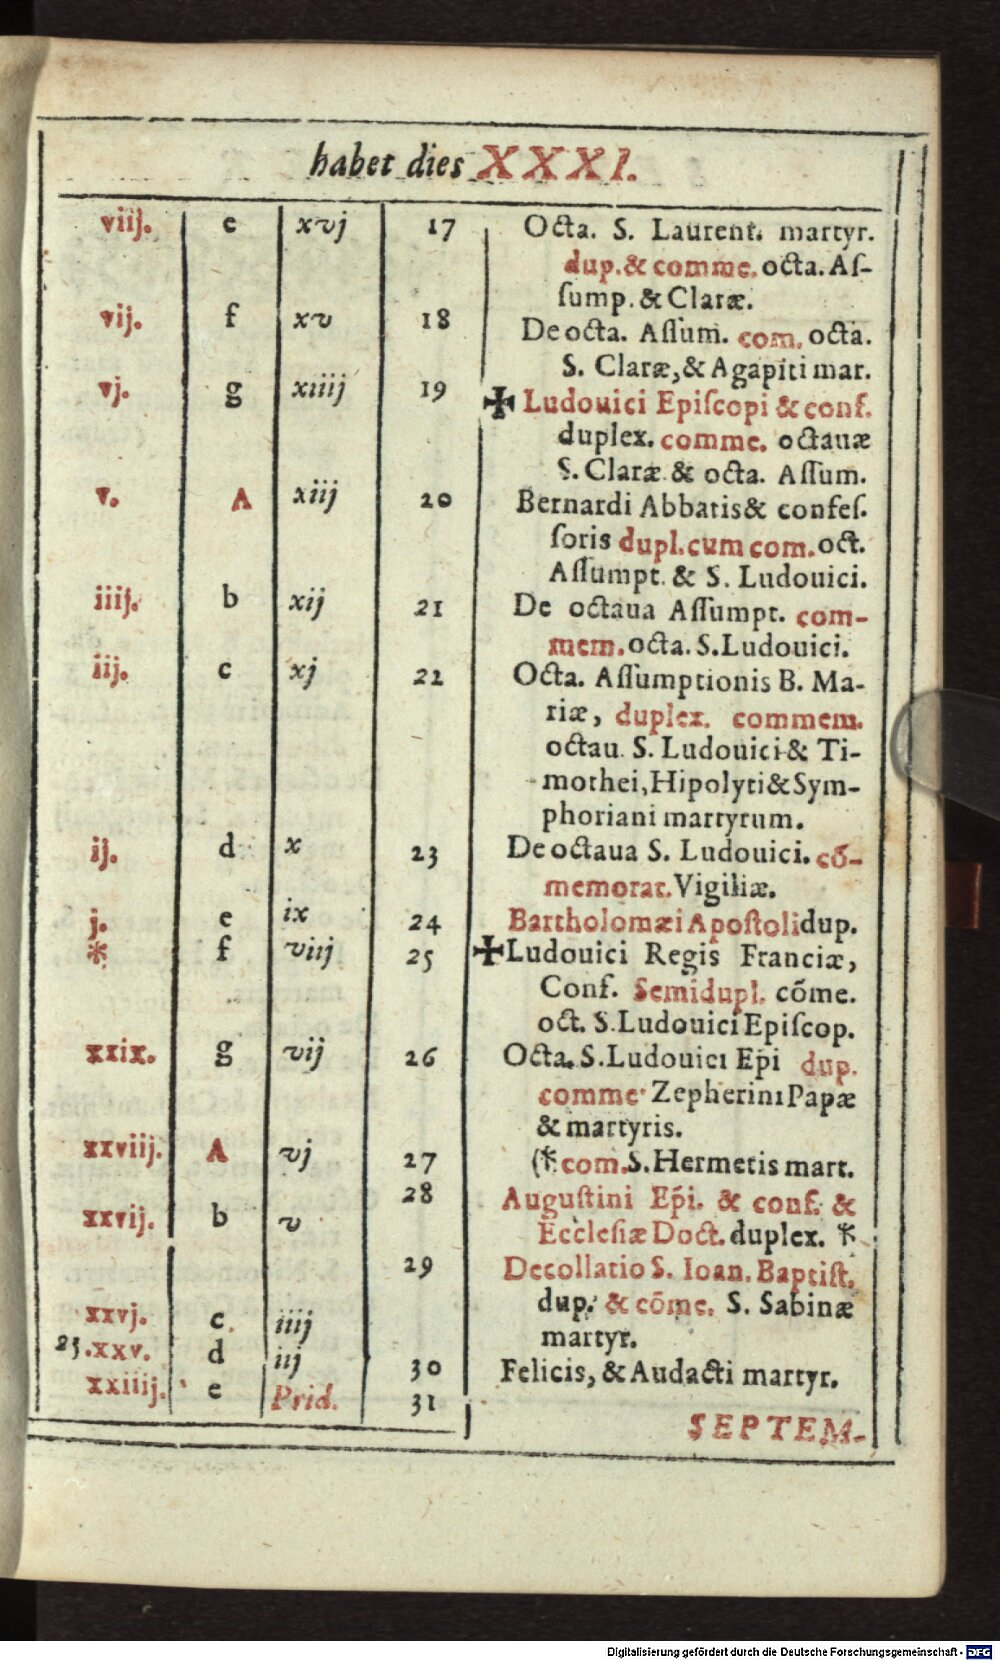 habet dies XXXI.
viij. e xvj 17 Octa. S. Laurent. martyr.
dup. & comme. octa. Aſ-
ſump. & Claræ.
vij. f xv 18 De octa. Aſſum. com. octa.
S. Claræ, & Agapiti mar.
vj. g xiiij 19 ✠ Ludouici Epiſcopi & conf.
duplex. comme. octauæ
S. Claræ & octa. Aſſum.
v. A xiij 20 Bernardi Abbatis & confeſ.
ſoris dupl. cum com. oct.
Aſſumpt. & S. Ludouici.
iiij. b xij 21 De octaua Aſſumpt. com-
mem. octa. S. Ludouici.
iij. c xj 22 Octa. Aſſumptionis B. Ma-
riæ, duplex. commem.
octau. S. Ludouici & Ti-
mothei, Hipolyti & Sym-
phoriani martyrum.
ij. d x 23 De octaua S. Ludouici. cõ-
memorat. Vigiliæ.
j. e ix 24 Bartholomæi Apoſtoli dup.
* f viij 25 ✠ Ludouici Regis Franciæ,
Conf. Semidupl. cõme.
oct. S. Ludouici Epiſcop.
xxix. g vij 26 Octa. S. Ludouici Ep̃i dup.
comme. Zepherini Papæ
& martyris.
xxviij. A vj 27 (* com. S. Hermetis mart.
xxvij. b v 28 Auguſtini Ep̃i. & conf. &
Eccleſiæ Doct. duplex. *
xxvj. c iiij 29 Decollatio S. Ioan. Baptiſt.
dup. & cõme. S. Sabinæ
martyr.
25. xxv. d iij 30 Felicis, & Audacti martyr.
xxiiij. e Prid. 31
SEPTEM-
Digitalisierung gefördert durch die Deutsche Forschungsgemeinschaft - DFG